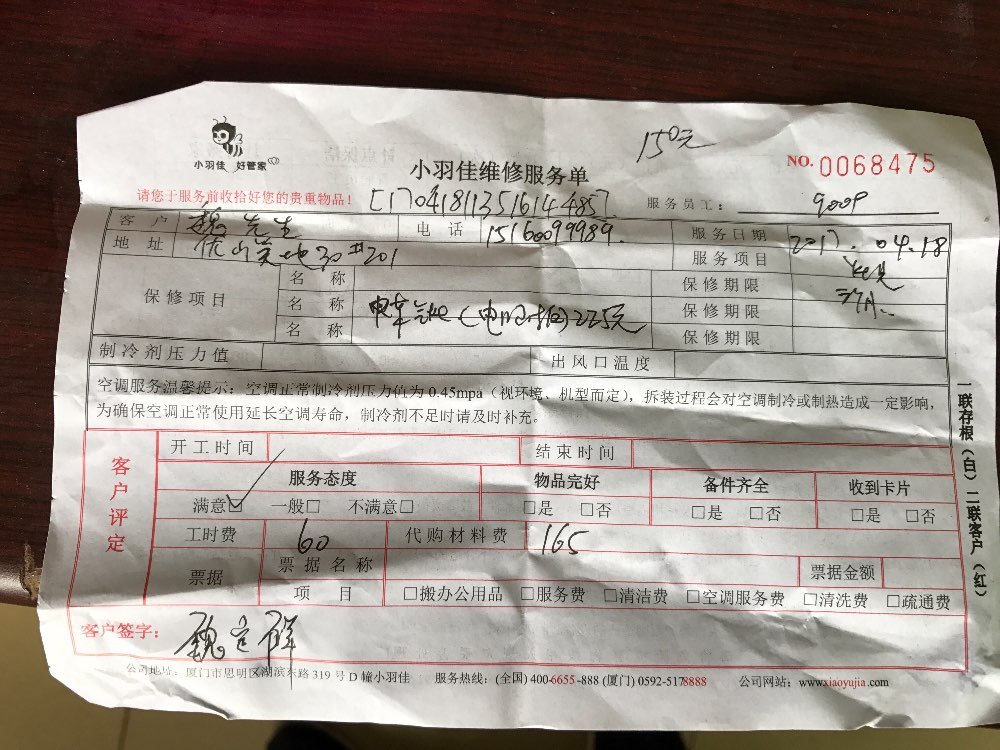 150元
小羽佳 好管家
小羽佳维修服务单
NO. 0068475
请您于服务前收拾好您的贵重物品!
[17041811351614485]
服务员工: 9009
客户 魏先生 电话 15160099989. 服务日期 2017.04.18
地址 30#201 服务项目
保修项目 名称 保修期限
名称 225元 保修期限
名称 保修期限
制冷剂压力值 出风口温度
空调服务温馨提示:空调正常制冷剂压力值为0.45mpa(视环境、机型而定),拆装过程会对空调制冷或制热造成一定影响,
为确保空调正常使用延长空调寿命,制冷剂不足时请及时补充。
客户评定
开工时间 结束时间
服务态度 物品完好 备件齐全 收到卡片
满意☑ 一般□ 不满意□ □是 □否 □是 □否 □是 □否
工时费 60 代购材料费 165
票据 票据名称 票据金额
项目 □搬办公用品 □服务费 □清洁费 □空调服务费 □清洗费 □疏通费
客户签字:
公司地址:厦门市思明区湖滨东路319号D幢小羽佳 服务热线:(全国)400-6655-888 (厦门)0592-5178888 公司网站:www.xiaoyujia.com
一联存根(白)二联客户(红)